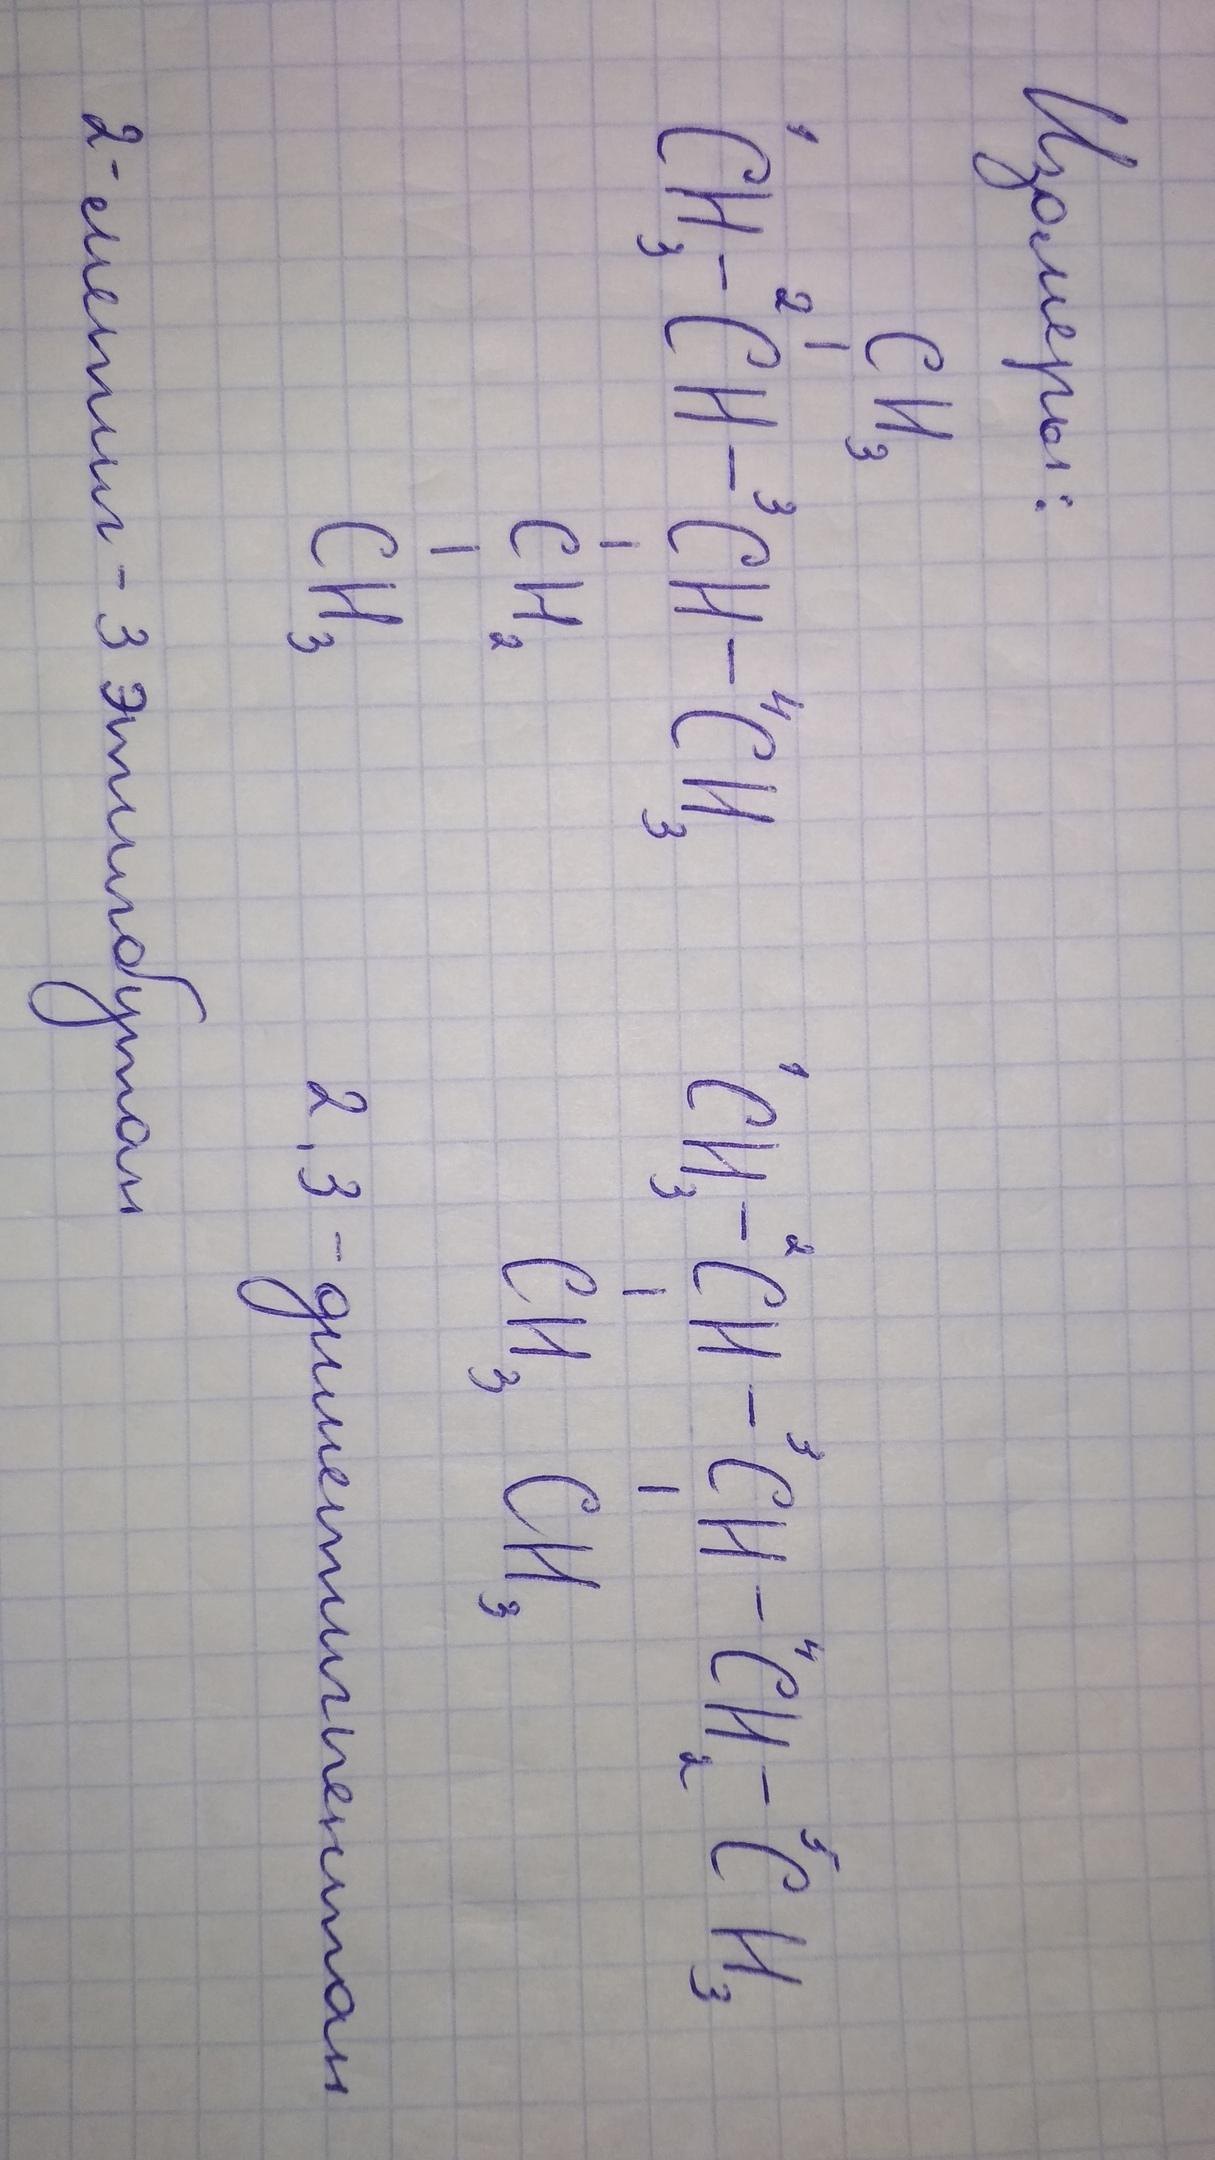 Изомеры:
CH3
1 2 3 4
CH3-CH-CH-CH3
CH2
CH3
2-метил-3 этилбутан
1 2 3 4 5
CH3-CH-CH-CH2-CH3
CH3 CH3
2,3-диметилпентан